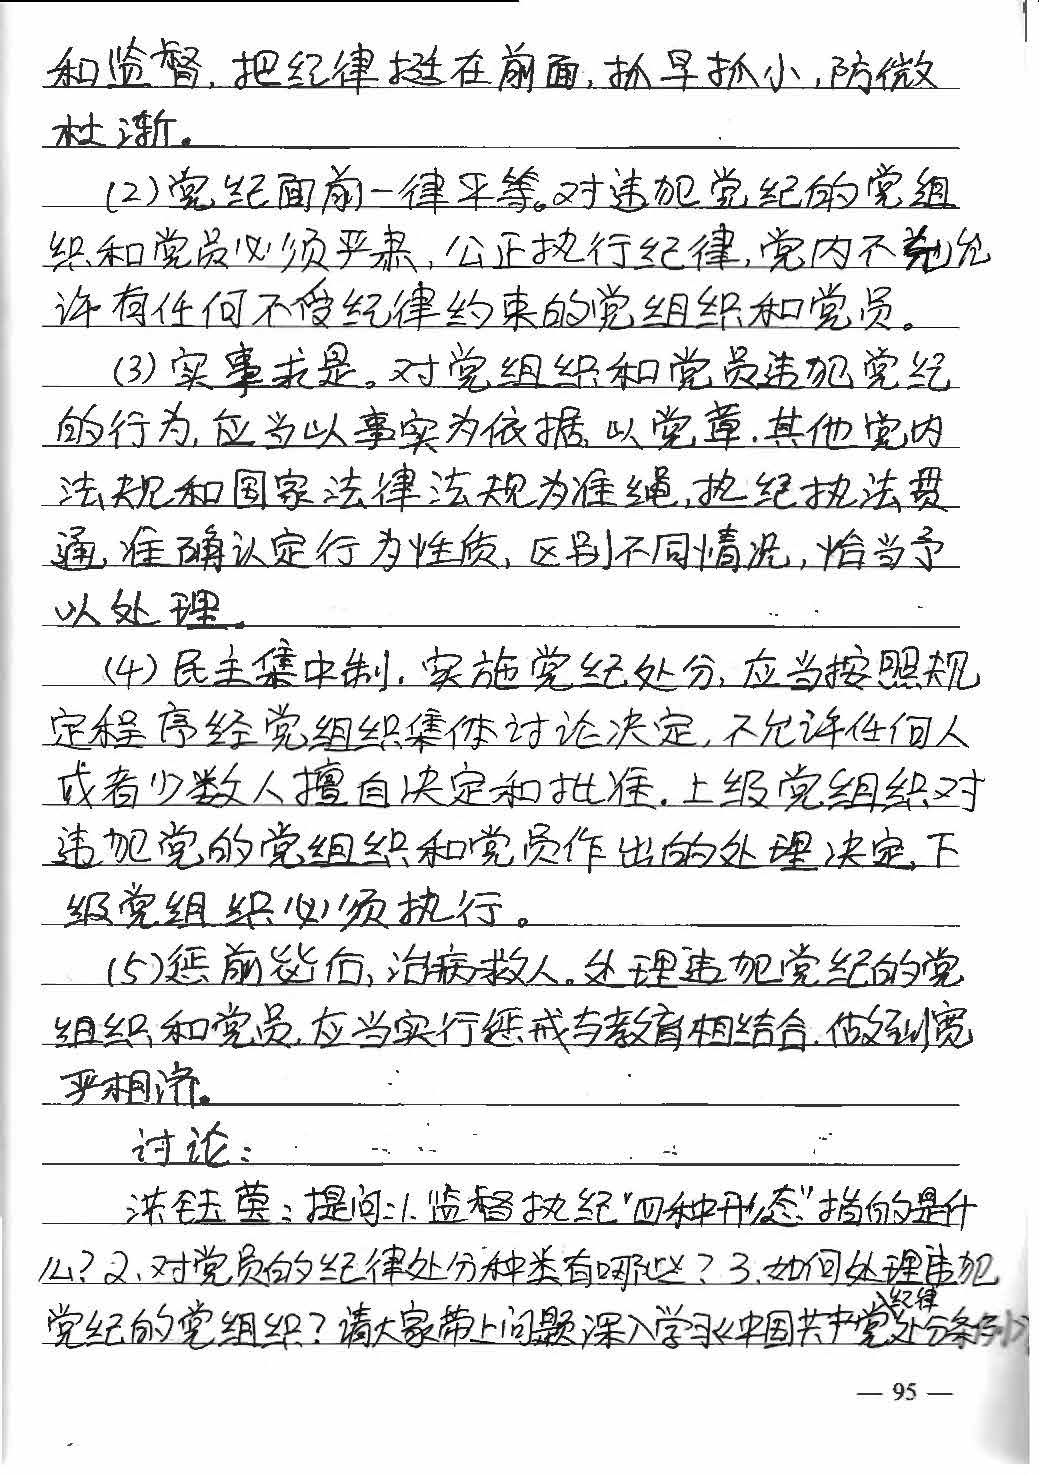 和监督,把纪律挺在前面,抓早抓小,防微
杜渐。
(2)党纪面前一律平等。对违犯党纪的党组
织和党员必须严肃,公正执行纪律,党内不允
许有任何不受纪律约束的党组织和党员。
(3)实事求是。对党组织和党员违犯党纪
的行为,应当以事实为依据,以党章.其他党内
法规和国家法律法规为准绳,执纪执法贯
通,准确认定行为性质,区别不同情况,恰当予
以处理。
(4)民主集中制.实施党纪处分,应当按照规
定程序经党组织集体讨论决定,不允许任何人
或者少数人擅自决定和批准.上级党组织对
违犯党的党组织和党员作出的处理决定,下
级党组织必须执行。
(5)惩前毖后,治病救人。处理违犯党纪的党
组织和党员,应当实行惩戒与教育相结合.做到宽
严相济。
讨论:
洪钰莹:提问:1.监督执纪"四种形态"指的是什
么?2、对党员的纪律处分种类有哪些?3、如何处理违犯
党纪的党组织?请大家带上问题深入学习《中国共产党纪律处分条例》
— 95 —